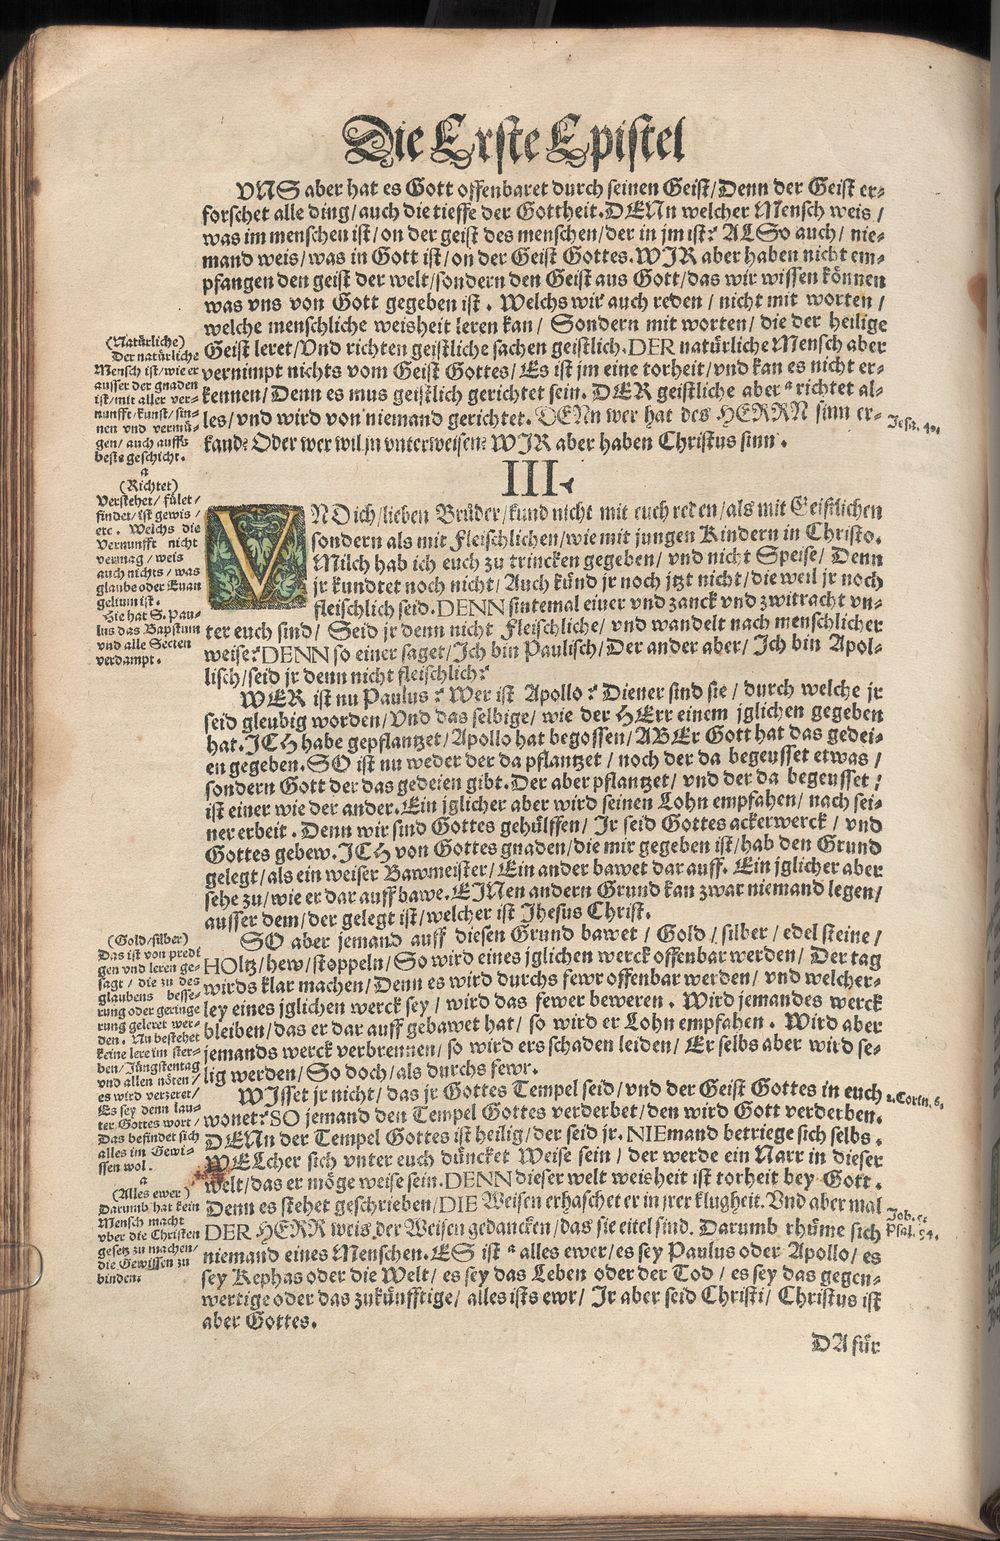 Die Erste Epistel
VNS aber hat es Gott offenbaret durch seinen Geist/Denn der Geist er-
forschet alle ding/auch die tieffe der Gottheit. DENn welcher Mensch weis/
was im menschen ist/on der geist des menschen/der in jm ist? ALSo auch/nie-
mand weis/was in Gott ist/on der Geist Gottes. WIR aber haben nicht em-
pfangen den geist der welt/sondern den Geist aus Gott/das wir wissen können
was vns von Gott gegeben ist. Welchs wir auch reden/nicht mit worten/
welche menschliche weisheit leren kan/Sondern mit worten/die der heilige
Geist leret/Vnd richten geistliche sachen geistlich. DER natürliche Mensch aber
vernimpt nichts vom Geist Gottes/Es ist jm eine torheit/vnd kan es nicht er-
kennen/Denn es mus geistlich gerichtet sein. DER geistliche aber a richtet al-
les/vnd wird von niemand gerichtet. DENn wer hat des HERRN sinn er-
kand? Oder wer wil jn vnterweisen? WIR aber haben Christus sinn.
(Natürliche)
Der natürliche
Mensch ist/wie er
ausser der gnaden
ist/mit aller ver-
nunfft/kunst/sin-
nen vnd vermü-
gen/auch auffs
beste geschicht.
a
(Richtet)
Verstehet/fület/
findet/ist gewis/
etc. Welchs die
Vernunfft nicht
vermag/weis
auch nichts/was
glaube oder Euan
gelium ist.
Hie hat S. Pau-
lus das Bapstum
vnd alle Secten
verdampt.
Jesa. 40.
III.
VND ich/lieben Brüder/kund nicht mit euch reden/als mit Geistlichen
sondern als mit Fleischlichen/wie mit jungen Kindern in Christo.
Milch hab ich euch zu trincken gegeben/vnd nicht Speise/Denn
jr kundtet noch nicht/Auch künd jr noch jtzt nicht/die weil jr noch
fleischlich seid. DENN sintemal eiuer vnd zanck vnd zwitracht vn-
ter euch sind/Seid jr denn nicht Fleischliche/vnd wandelt nach menschlicher
weise? DENN so einer saget/Ich bin Paulisch/Der ander aber/Ich bin Apol-
lisch/seid jr denn nicht fleischlich?
WER ist nu Paulus? Wer ist Apollo? Diener sind sie/durch welche jr
seid gleubig worden/Vnd das selbige/wie der HErr einem jglichen gegeben
hat. ICH habe gepflantzet/Apollo hat begossen/ABEr Gott hat das gedei-
en gegeben. SO ist nu weder der da pflantzet/noch der da begeusset etwas/
sondern Gott der das gedeien gibt. Der aber pflantzet/vnd der da begeusset/
ist einer wie der ander. Ein jglicher aber wird seinen Lohn empfahen/nach sei-
ner erbeit. Denn wir sind Gottes gehülffen/Jr seid Gottes ackerwerck/vnd
Gottes gebew. ICH von Gottes gnaden/die mir gegeben ist/hab den Grund
gelegt/als ein weiser Bawmeister/Ein ander bawet dar auff. Ein jglicher aber
sehe zu/wie er dar auff bawe. EINen andern Grund kan zwar niemand legen/
ausser dem/der gelegt ist/welcher ist Jhesus Christ.
SO aber jemand auff diesen Grund bawet/Gold/silber/edel steine/
HOltz/hew/stoppeln/So wird eines jglichen werck offenbar werden/Der tag
wirds klar machen/Denn es wird durchs fewr offenbar werden/vnd welcher-
ley eines jglichen werck sey/wird das fewer beweren. Wird jemandes werck
bleiben/das er dar auff gebawet hat/so wird er Lohn empfahen. Wird aber
jemands werck verbrennen/so wird ers schaden leiden/Er selbs aber wird se-
lig werden/So doch/als durchs fewr.
WIsset jr nicht/das jr Gottes Tempel seid/vnd der Geist Gottes in euch
wonet? SO jemand den Tempel Gottes verderbet/den wird Gott verderben.
DENn der Tempel Gottes ist heilig/der seid jr. NIEmand betriege sich selbs.
WELcher sich vnter euch düncket Weise sein/der werde ein Narr in dieser
welt/das er möge weise sein. DENN dieser welt weisheit ist torheit bey Gott.
Denn es stehet geschrieben/DIE Weisen erhaschet er in jrer klugheit. Vnd aber mal
DER HERR weis der Weisen gedancken/das sie eitel sind. Darumb rhüme sich
niemand eines Menschen. ES ist a alles ewer/es sey Paulus oder Apollo/es
sey Kephas oder die Welt/es sey das Leben oder der Tod/es sey das gegen-
wertige oder das zukünfftige/alles ists ewr/Jr aber seid Christi/Christus ist
aber Gottes.
(Gold/silber)
Das ist von predi
gen vnd leren ge-
sagt/die zu des
glaubens besse-
rung oder geringe
rung geleret wer-
den. Nu bestehet
keine lere im ster-
ben/Jüngstentag
vnd allen nöten/
es wird verzeret/
Es sey denn lau-
ter Gottes wort/
Das befindet sich
alles im Gewi-
ssen wol.
a
(Alles ewer)
Darumb hat kein
Mensch macht
vber die Christen
gesetz zu machen/
die Gewissen zu
binden.
2. Corin. 6.
Job. 5.
Psal. 94.
DA für